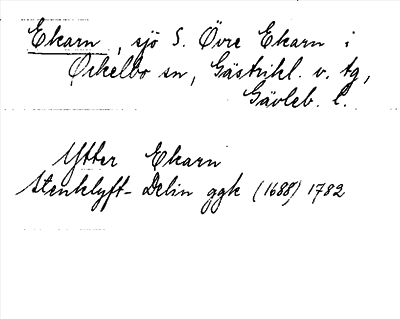 Ekarn, sjö S. Övre Ekarn i
Ockelbo sn, Gästrikl. v. tg,
Gävleb. l.
Ytter Ekarn
Stenklyft-Delin ggk (1688) 1782